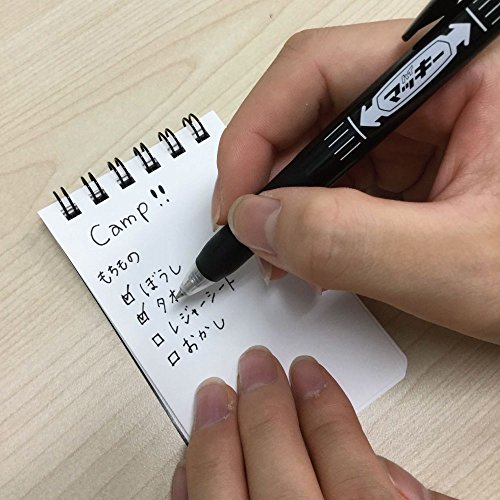 Camp!!
もちもの
☑ ぼうし
☑ タオ
□ レジャーシート
□ おかし
マッキー